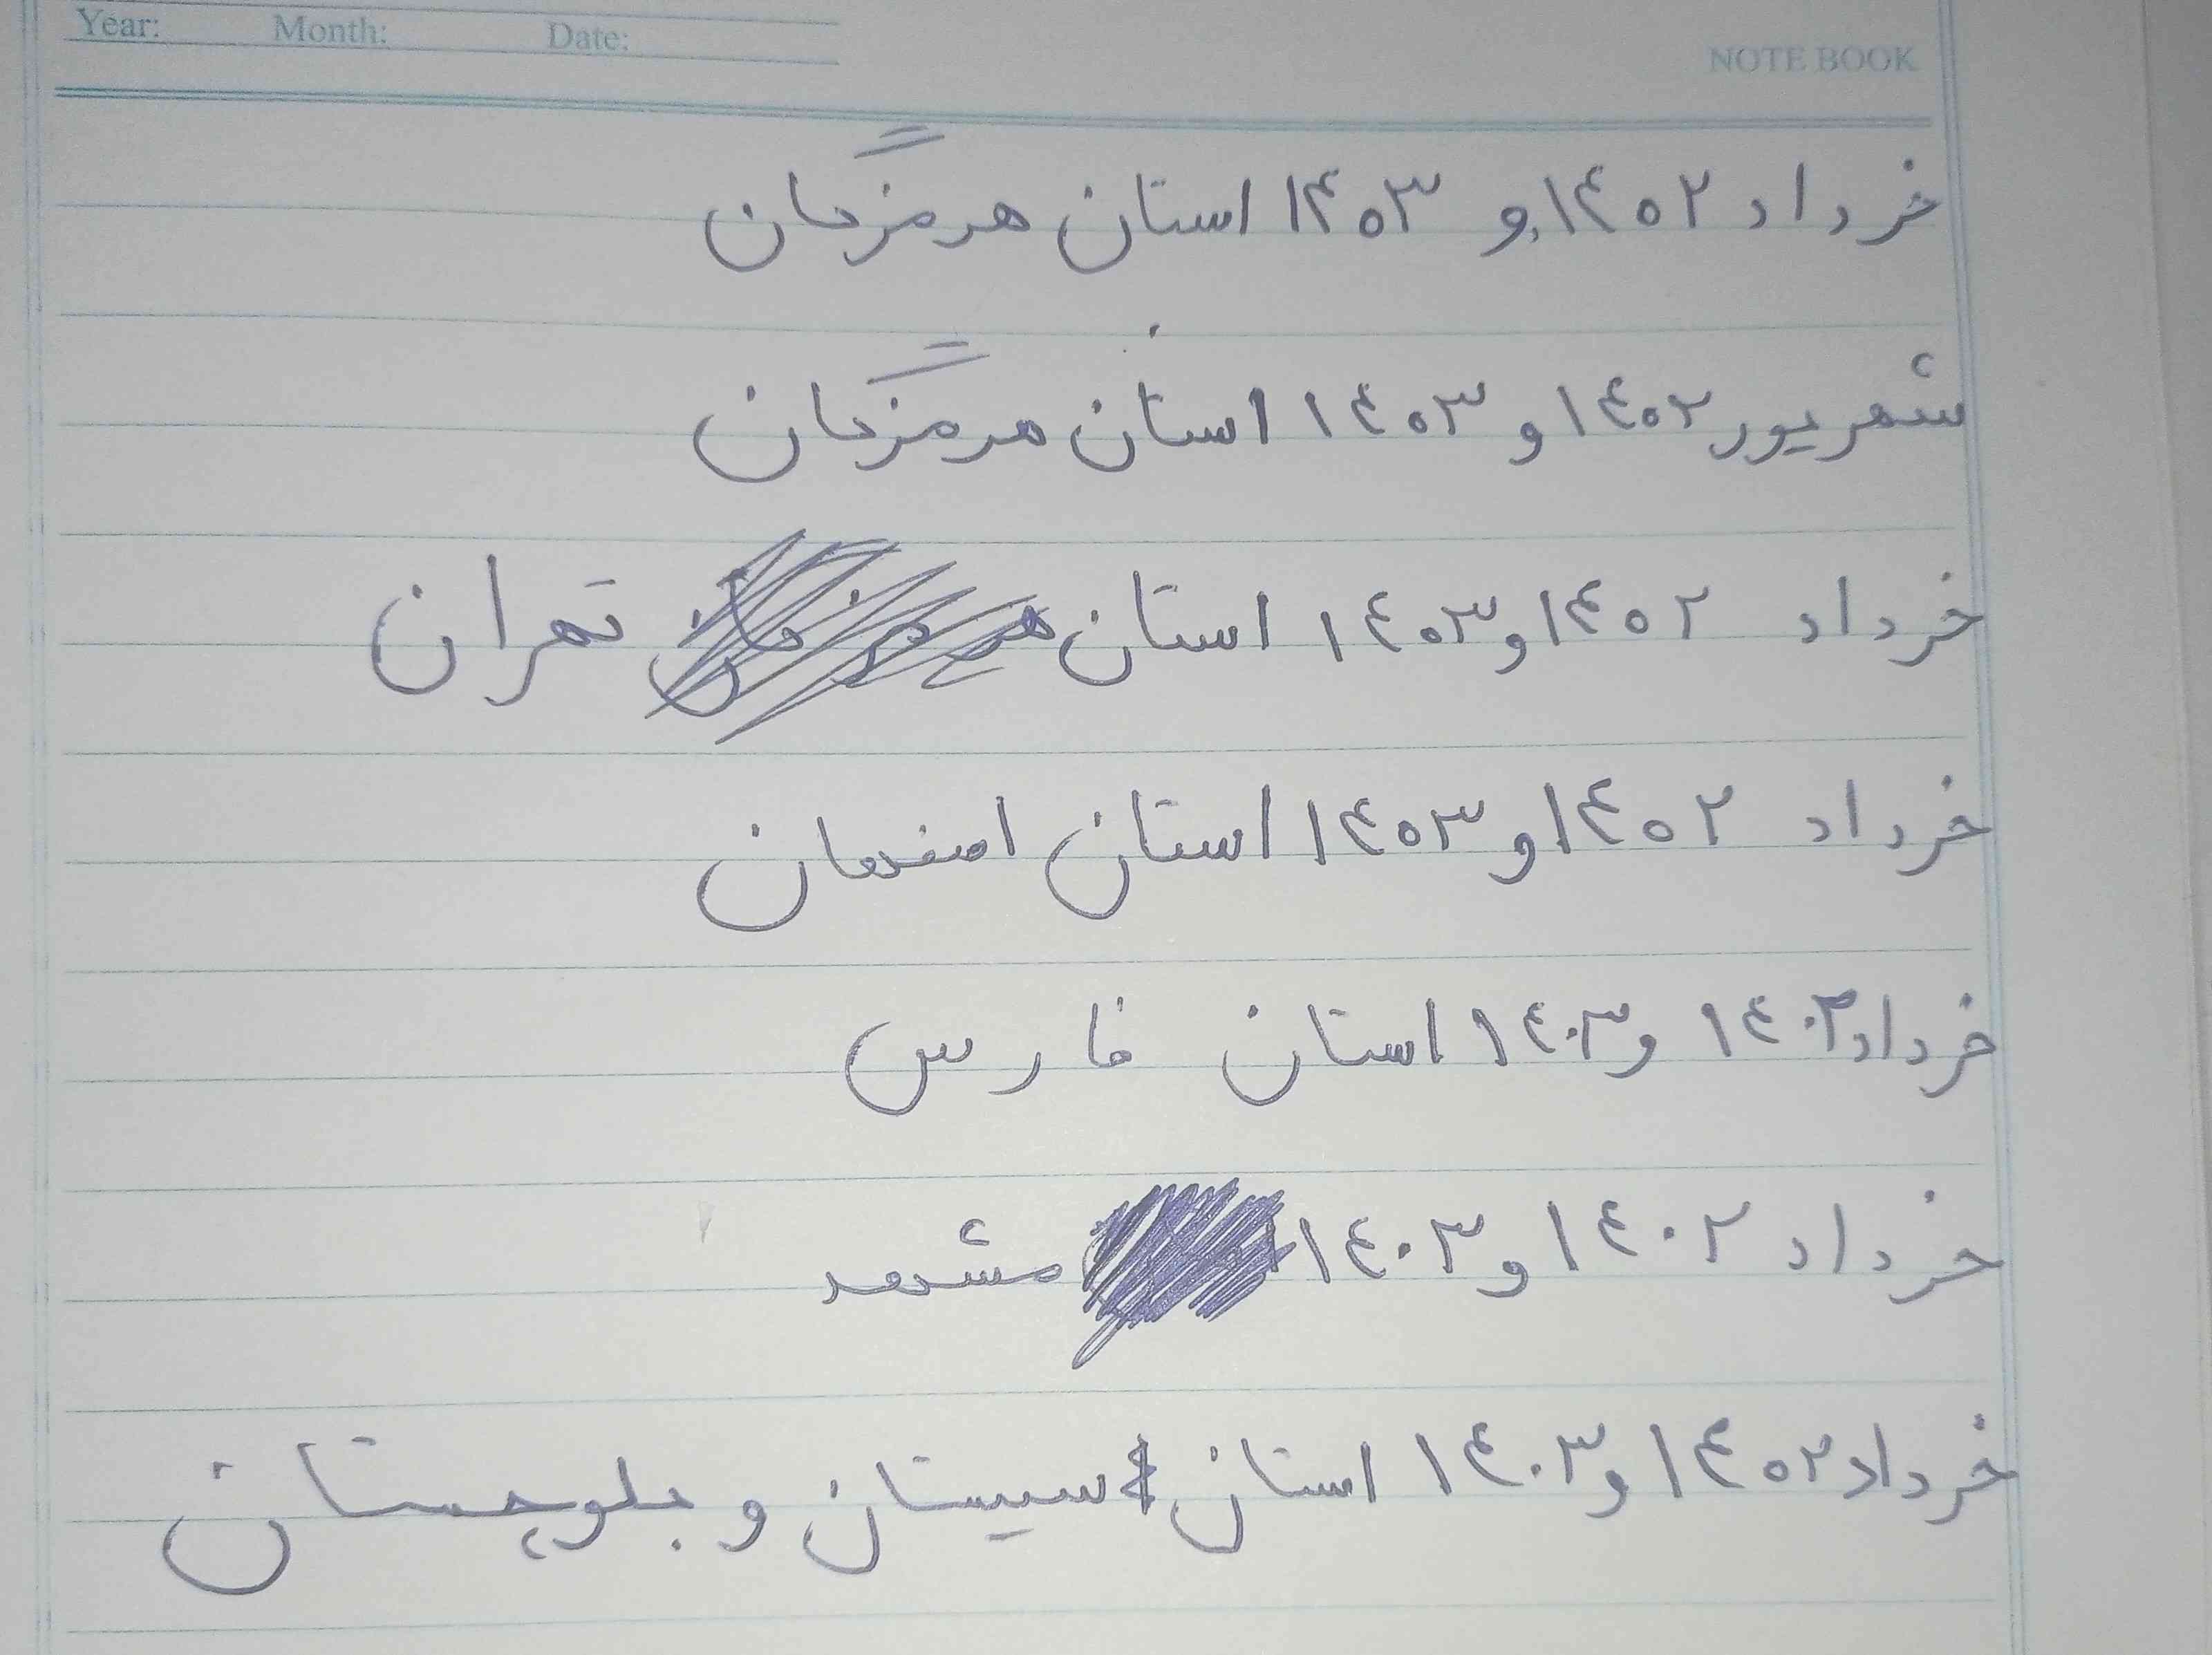 Year: Month: Date:
NOTE BOOK
خرداد ۱۴۰۲ و ۱۴۰۳ استان هرمزگان
شهریور ۱۴۰۲ و ۱۴۰۳ استان هرمزگان
خرداد ۱۴۰۲ و ۱۴۰۳ استان تهران
خرداد ۱۴۰۲ و ۱۴۰۳ استان اصفهان
خرداد ۱۴۰۲ و ۱۴۰۳ استان فارس
خرداد ۱۴۰۲ و ۱۴۰۳ مشهد
خرداد ۱۴۰۲ و ۱۴۰۳ استان سیستان و بلوچستان